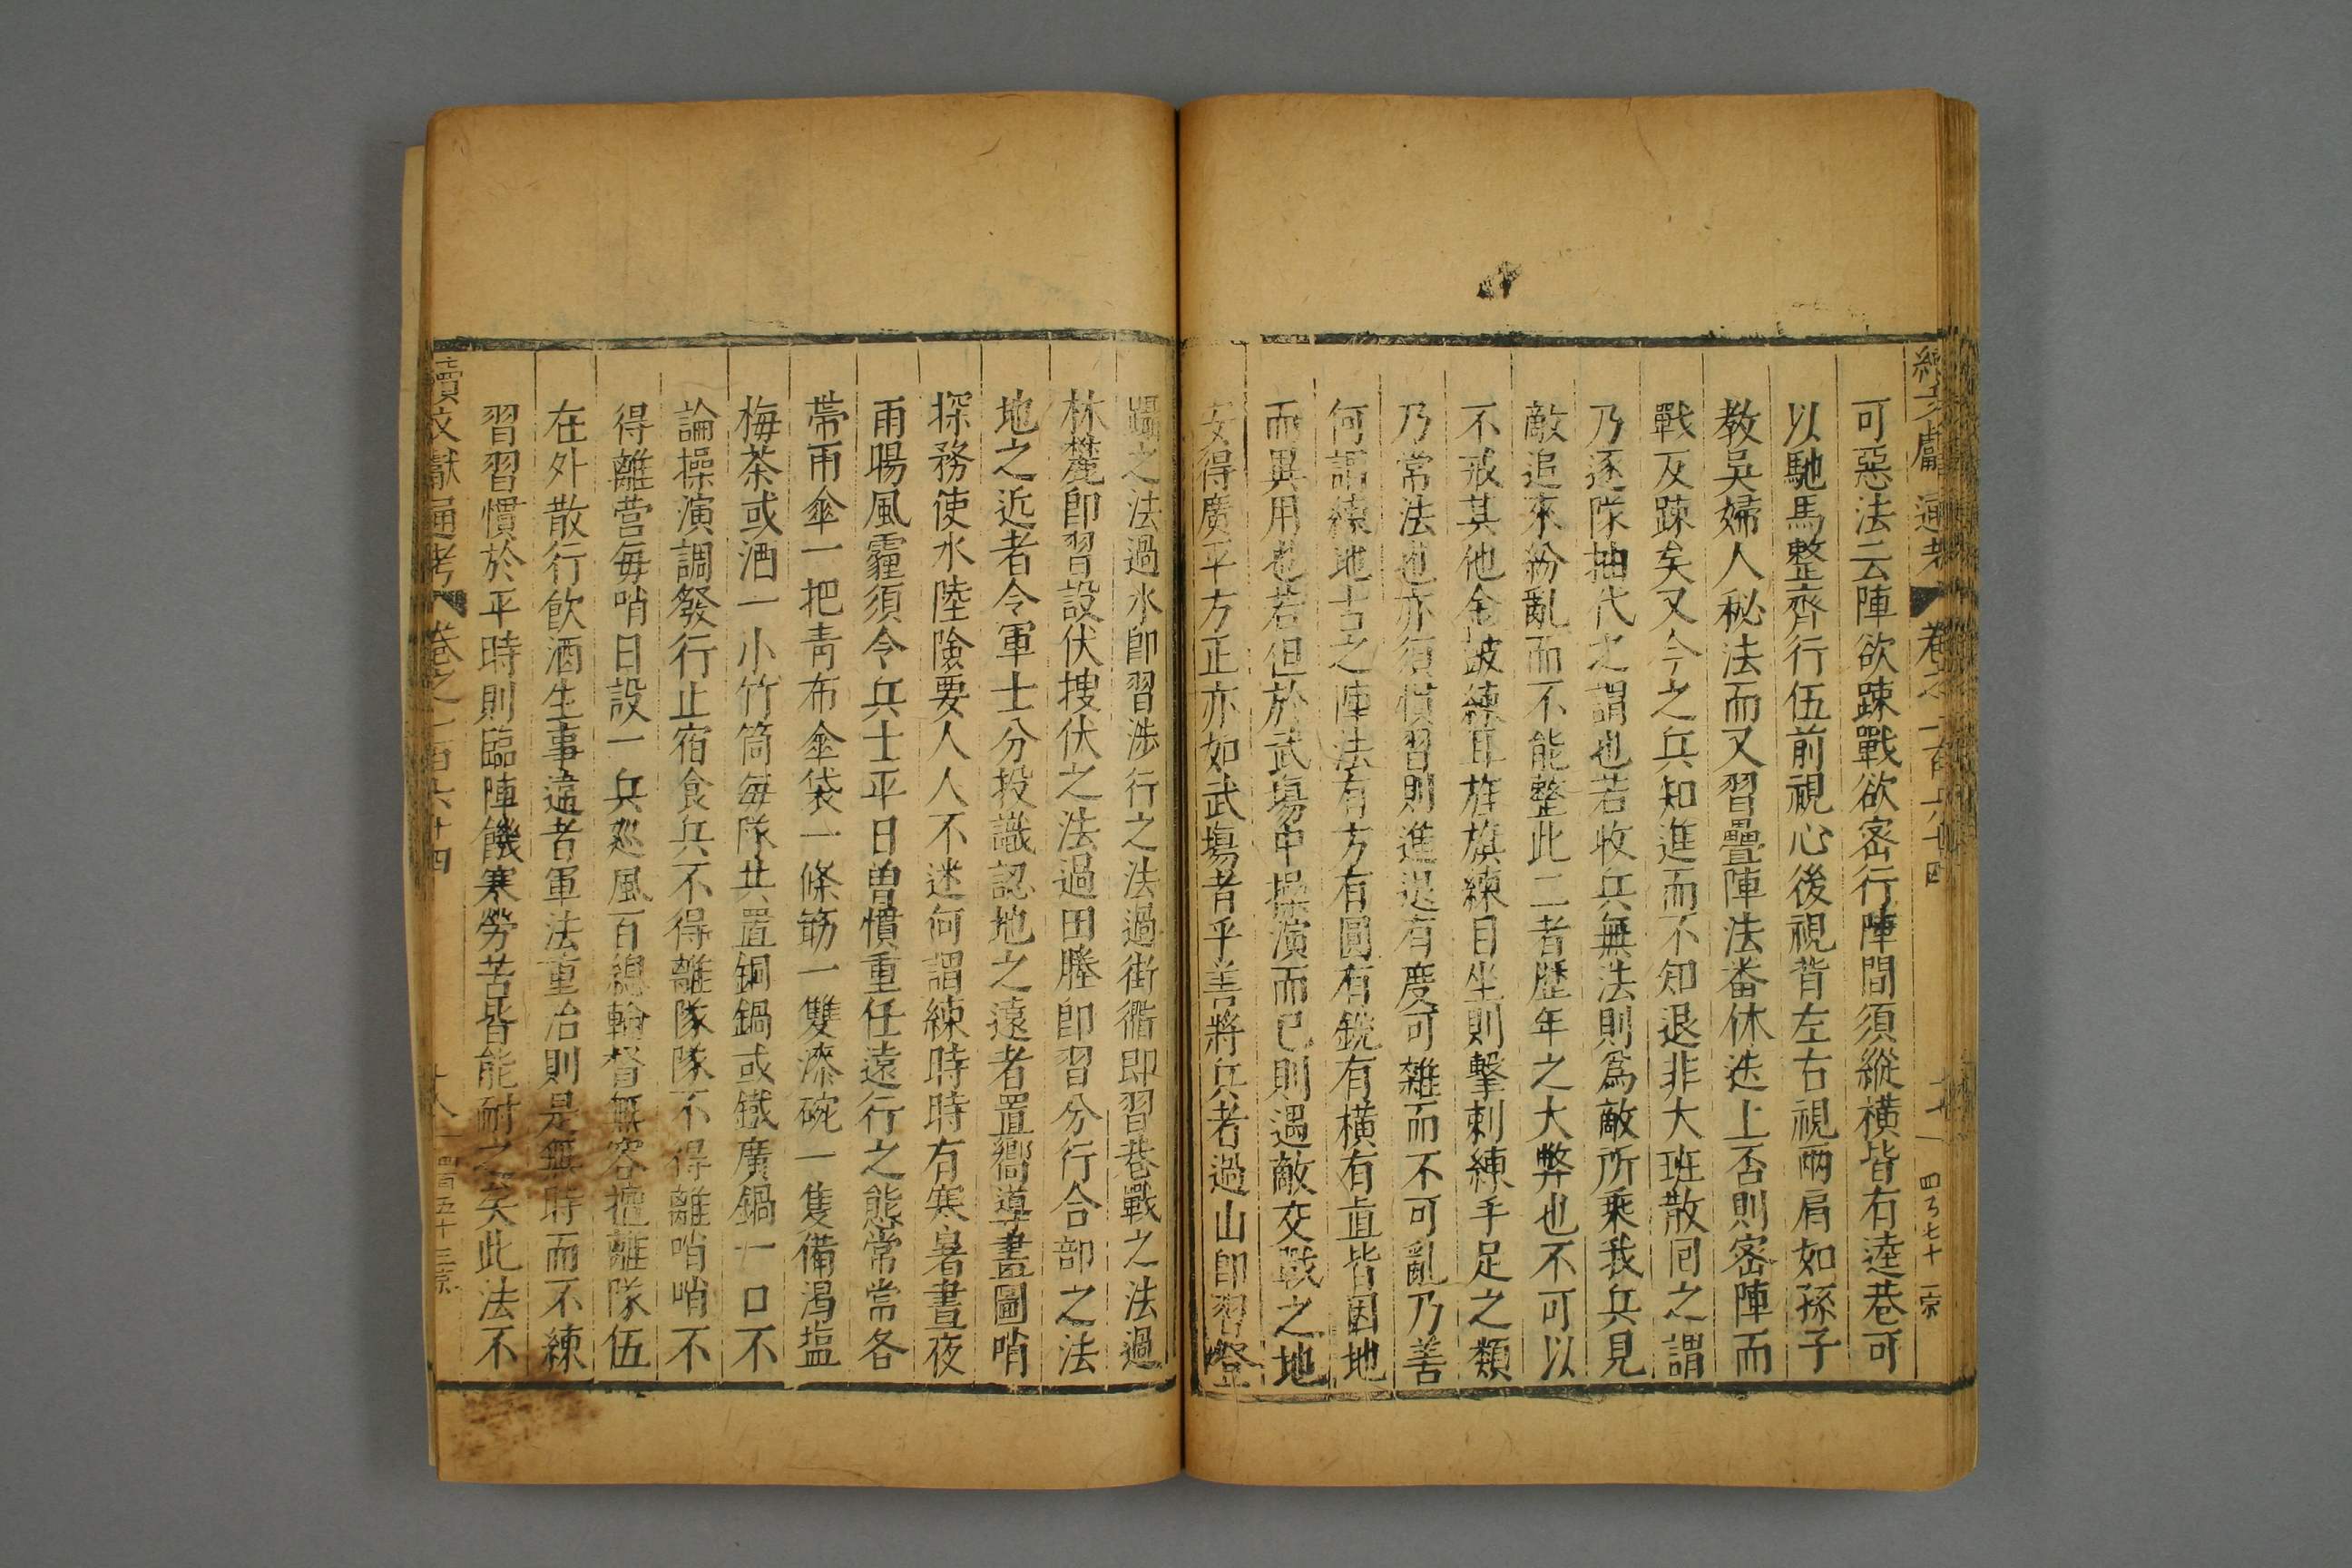 續文獻通考 卷之一百六十四 十七 四百七十一
可惡法云陣欲踈戰欲密行陣間須縱橫皆有逵巷可
以馳馬整齊行伍前視心後視背左右視兩肩如孫子
教吳婦人秘法而又習疊陣法畨休迭上否則密陣而
戰反踈矣又今之兵知進而不知退非大班散囘之謂
乃逐隊抽代之謂也若收兵無法則爲敵所乘我兵見
敵追來紛亂而不能整此二者歷年之大弊也不可以
不戒其他金鼓練耳旌旗練目坐則擊刺練手足之類
乃常法也亦須慣習則進退有度可雜而不可亂乃善
何謂練地古之陣法有方有圓有銳有橫有直皆因地
而異用也若但於武塲中操演而已則遇敵交戰之地
安得廣平方正亦如武塲者乎善將兵者過山卽習登
躡之法過水卽習涉行之法過街衢卽習巷戰之法過
林麓卽習設伏搜伏之法過田塍卽習分行合部之法
地之近者令軍士分投識認地之遠者置嚮導畫圖哨
探務使水陸險要人人不迷何謂練時時有寒暑晝夜
雨暘風霾須令兵士平日曾慣重任遠行之態常常各
帶雨傘一把青布傘袋一條筯一雙漆碗一隻備渴塩
梅茶或酒一小竹筒每隊共置銅鍋或鐵廣鍋一口不
論操演調發行止宿食兵不得離隊隊不得離哨哨不
得離營每哨日設一兵廵風百總輪督無容擅離隊伍
在外散行飲酒生事違者軍法重治則是無時而不練
習習慣於平時則臨陣饑寒勞苦皆能耐之矣此法不
續文獻通考 卷之一百六十四 十八 四百五十三